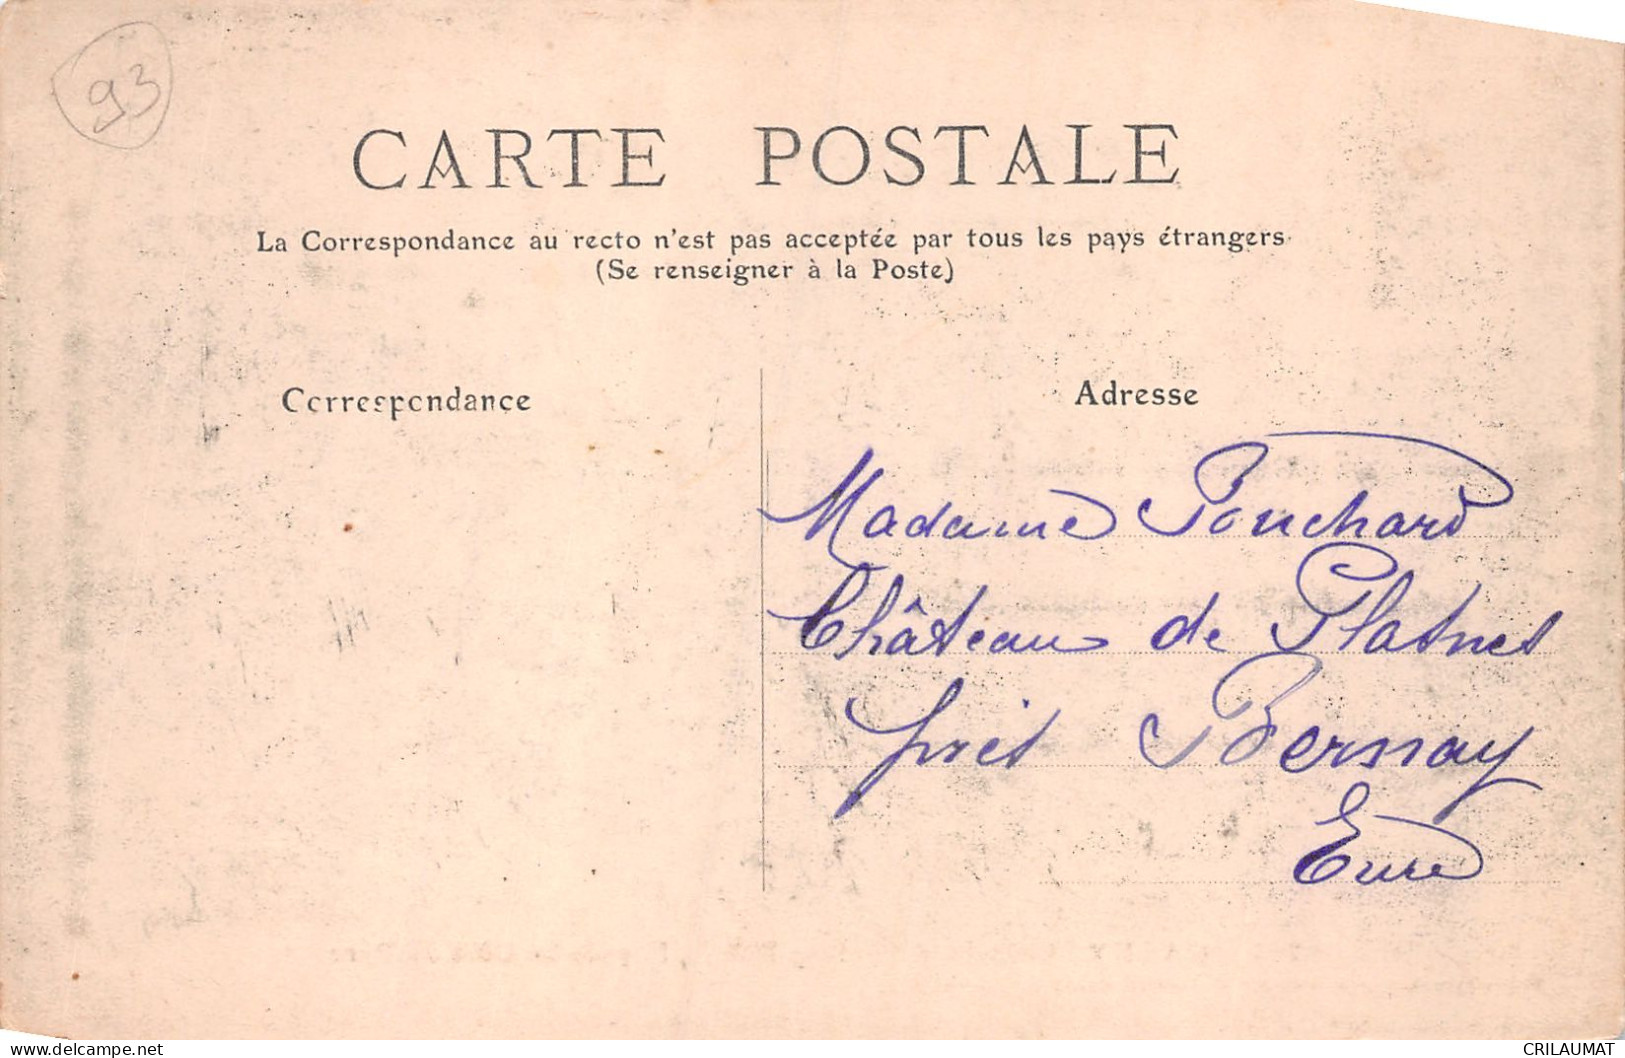 93
CARTE POSTALE
La Correspondance au recto n'est pas acceptée par tous les pays étrangers
(Se renseigner à la Poste)
Correspondance
Adresse
Madame Pouchard
Château de Platnes
près Bernay
Eure
www.delcampe.net
CRILAUMAT